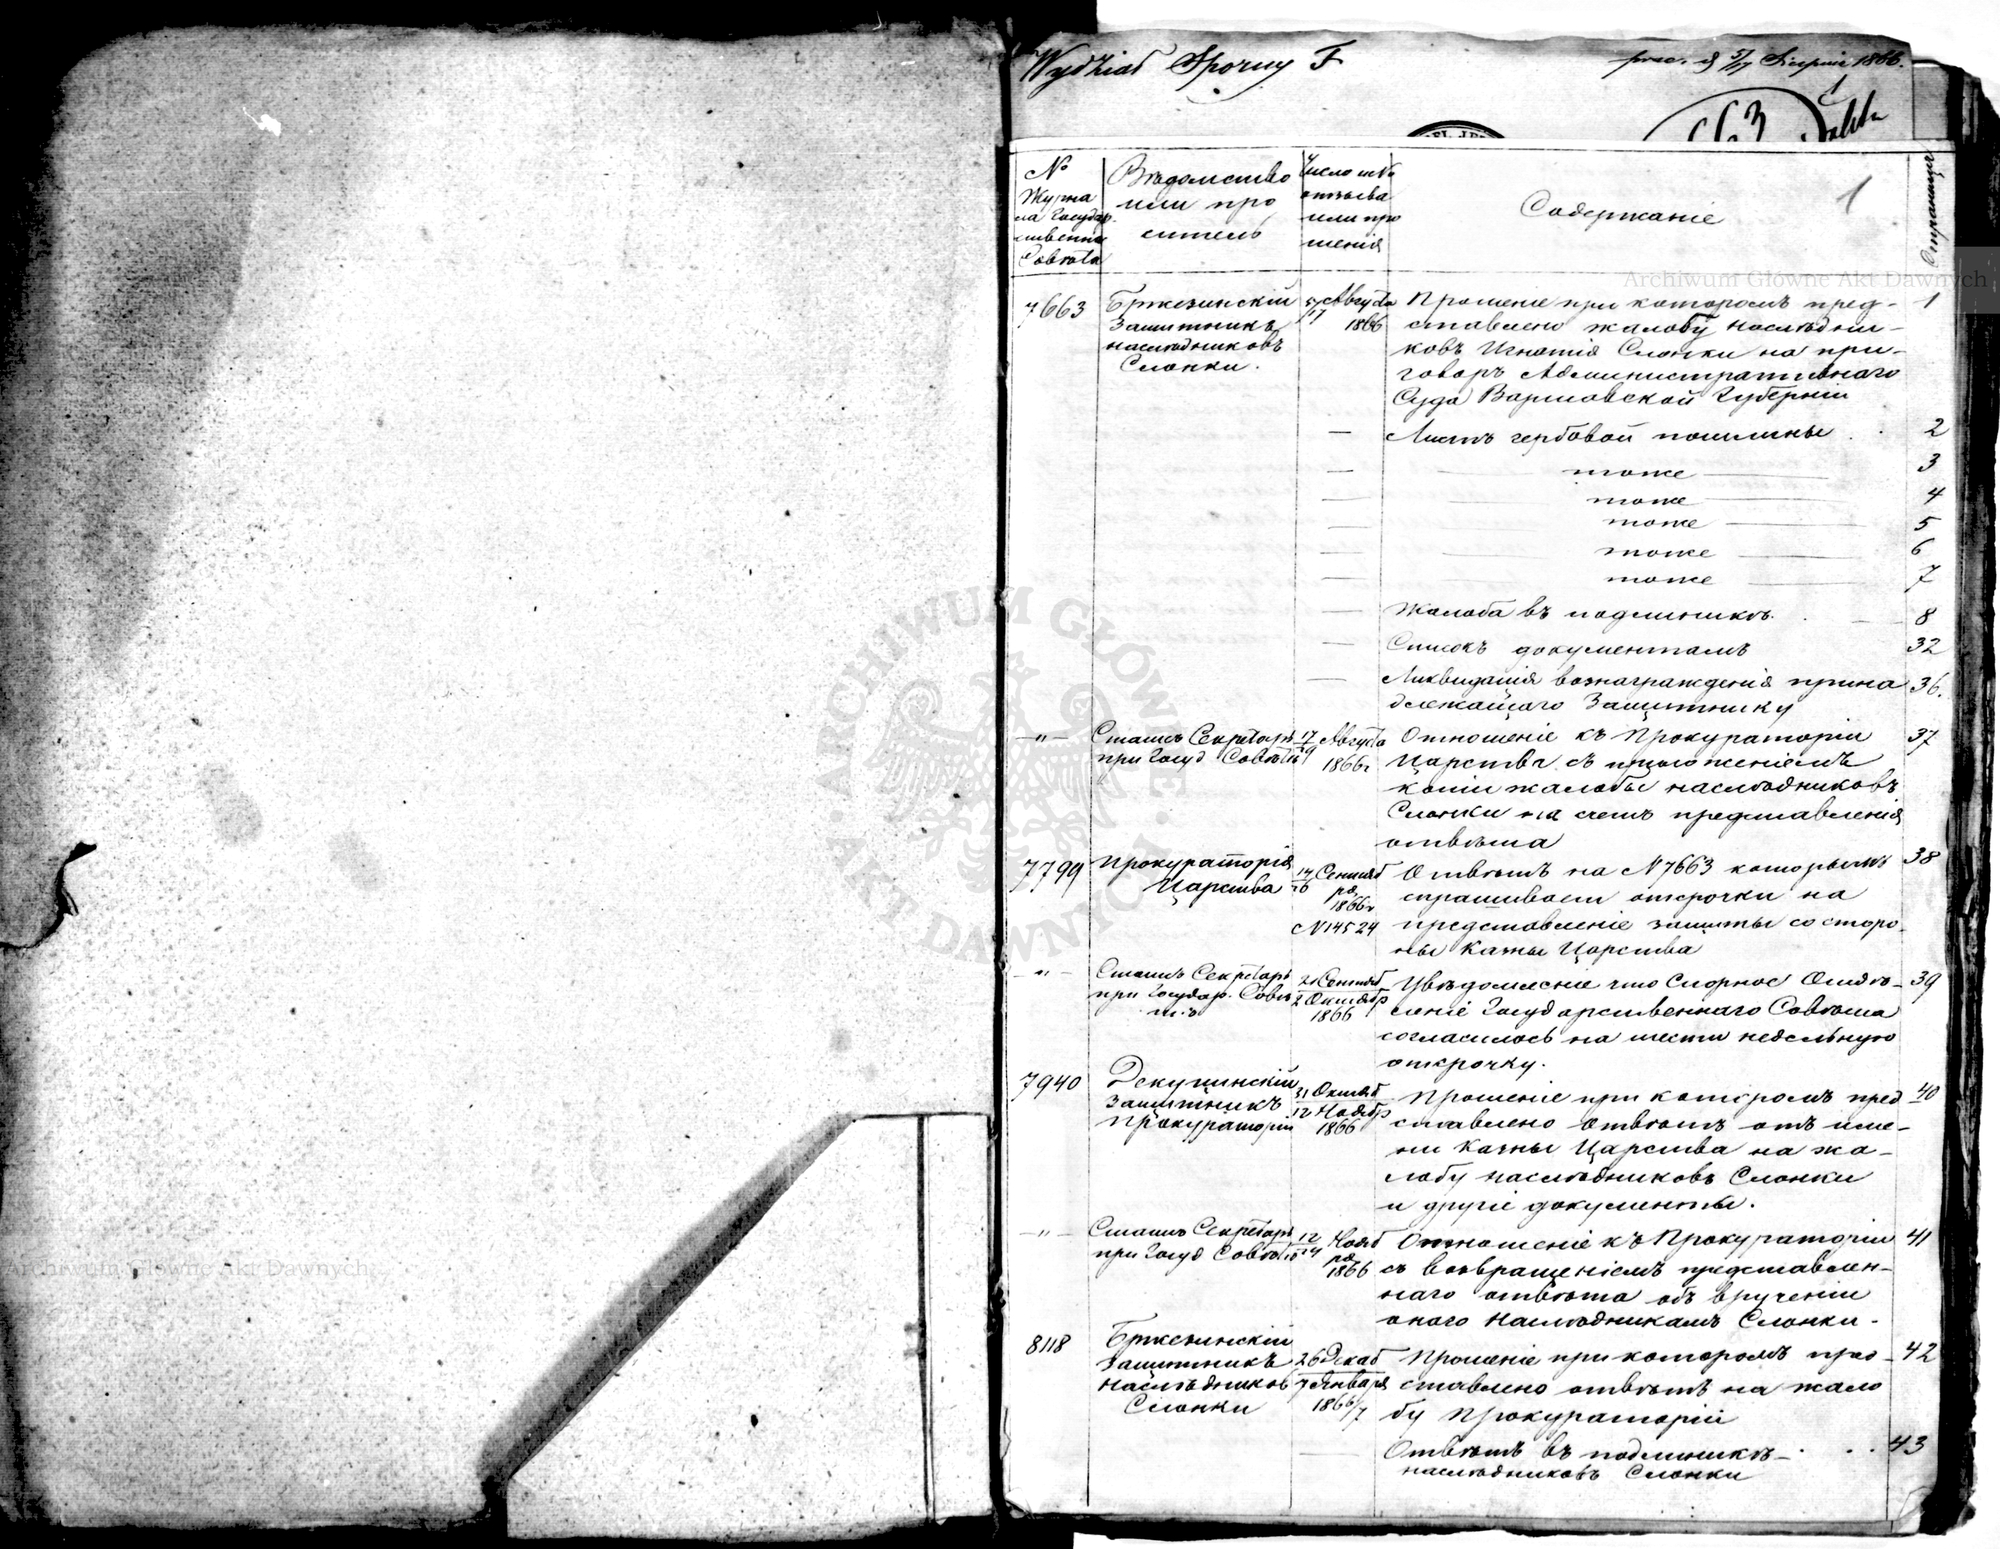 Wydział Sporny F
prez. d 5/17 Sierpnia 1866.
1
663
№ Журнала Государственна Совѣта
Вѣдомство или проситель
Число и № отзыва или прошенія
Содержаніе
Страница
7663
Бржезинскій
Защитникъ
наслѣдниковъ
Слонки.
5/17 Августа
1866
Прошеніе при которомъ пред-
ставлено жалобу наслѣдни-
ковъ Игнатія Слонки на при-
говоръ Административнаго
Суда Варшавской Губерніи
1
— Листъ гербовой пошлины . . 2
— тоже — 3
— тоже — 4
— тоже — 5
— тоже — 6
— тоже — 7
— Жалоба въ подлинникѣ. . — 8
— Списокъ документамъ 32
— Ликвидація вознагражденія прина
длежащаго Защитнику
36.
—"—
Статсъ Секретарь
при Госуд Совѣтѣ
17/29 Августа
1866г
Отношеніе къ Прокураторіи
Царства съ приложеніемъ
копіи жалобы наслѣдниковъ
Слонки на счетъ представленія
отвѣта
37
7799
Прокураторія
Царства
14/26 Сентяб
ря
1866г
№14524
Отвѣтъ на №7663 которымъ
спрашиваетъ отсрочки на
представленіе защиты со сторо-
ны Казны Царства
38
—"—
Статсъ Секретарь
при Государ. Совѣ
тѣ
Сентяб
2 Октябр
1866
Увѣдомленіе что Спорное Отдѣ-
леніе Государственнаго Совѣта
согласилось на шести недѣльную
отсрочку.
39
7940
Защитникъ
Прокураторіи
31 Октяб
12 Ноябр
1866
Прошеніе при которомъ пред
ставлено отвѣтъ отъ име-
ни Казны Царства на жа-
лобу наслѣдниковъ Слонки
и другіе документы.
40
—"—
Статсъ Секретарь
при Госуд Совѣтѣ
12/24 Нояб
ря
1866
Отношеніе къ Прокураторіи
съ возвращеніемъ представлен-
наго отвѣта объ врученіи
онаго наслѣдникамъ Слонки.
41
8118
Бржезинскій
Защитникъ
наслѣдниковъ
Слонки
26 Декаб
7 Января
1866/7
Прошеніе при которомъ пред-
ставлено отвѣтъ на жало
бу Прокураторіи
42
— Отвѣтъ въ подлинникѣ — . . .
наслѣдниковъ Слонки
43
Archiwum Główne Akt Dawnych
Archiwum Główne Akt Dawnych
ARCHIWUM GŁÓWNE AKT DAWNYCH